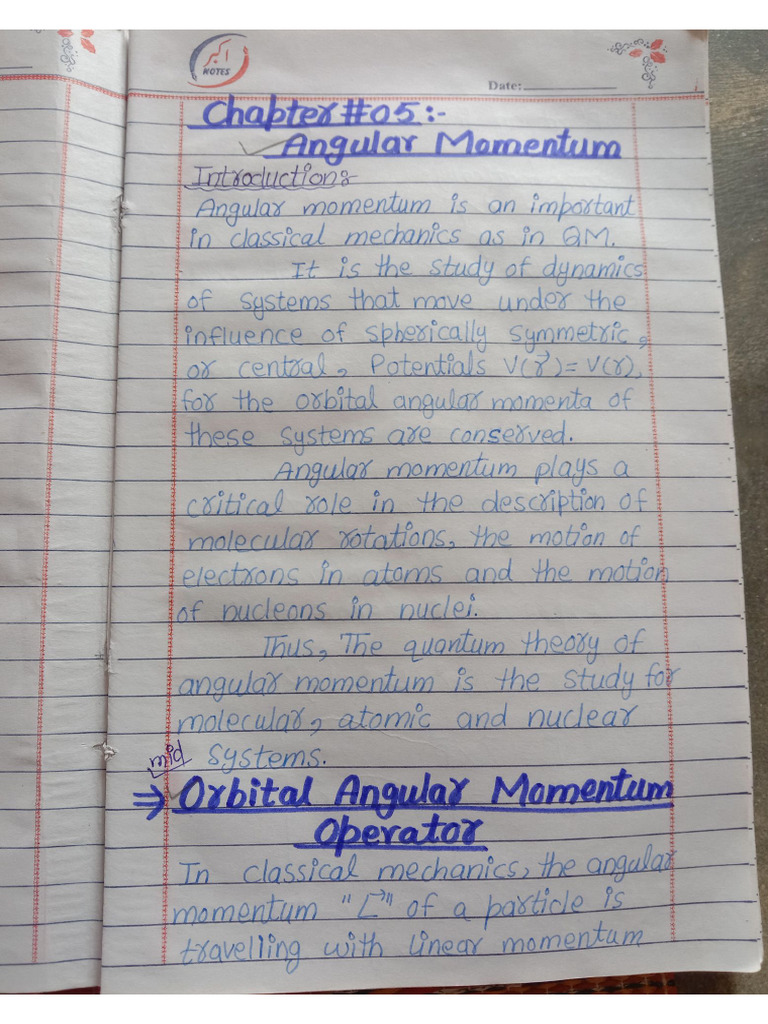 NOTES
Date:
Chapter#05:-
Angular Momentum
Introduction:-
Angular momentum is an important
in classical mechanics as in QM.
It is the study of dynamics
of systems that move under the
influence of spherically symmetric,
or central, Potentials V(r⃗)=V(r),
for the orbital angular momenta of
these systems are conserved.
Angular momentum plays a
critical role in the description of
molecular rotations, the motion of
electrons in atoms and the motion
of nucleons in nuclei.
Thus, The quantum theory of
angular momentum is the study for
molecular, atomic and nuclear
mid systems.
⇒ Orbital Angular Momentum
Operator
In classical mechanics, the angular
momentum "L⃗" of a particle is
travelling with linear momentum